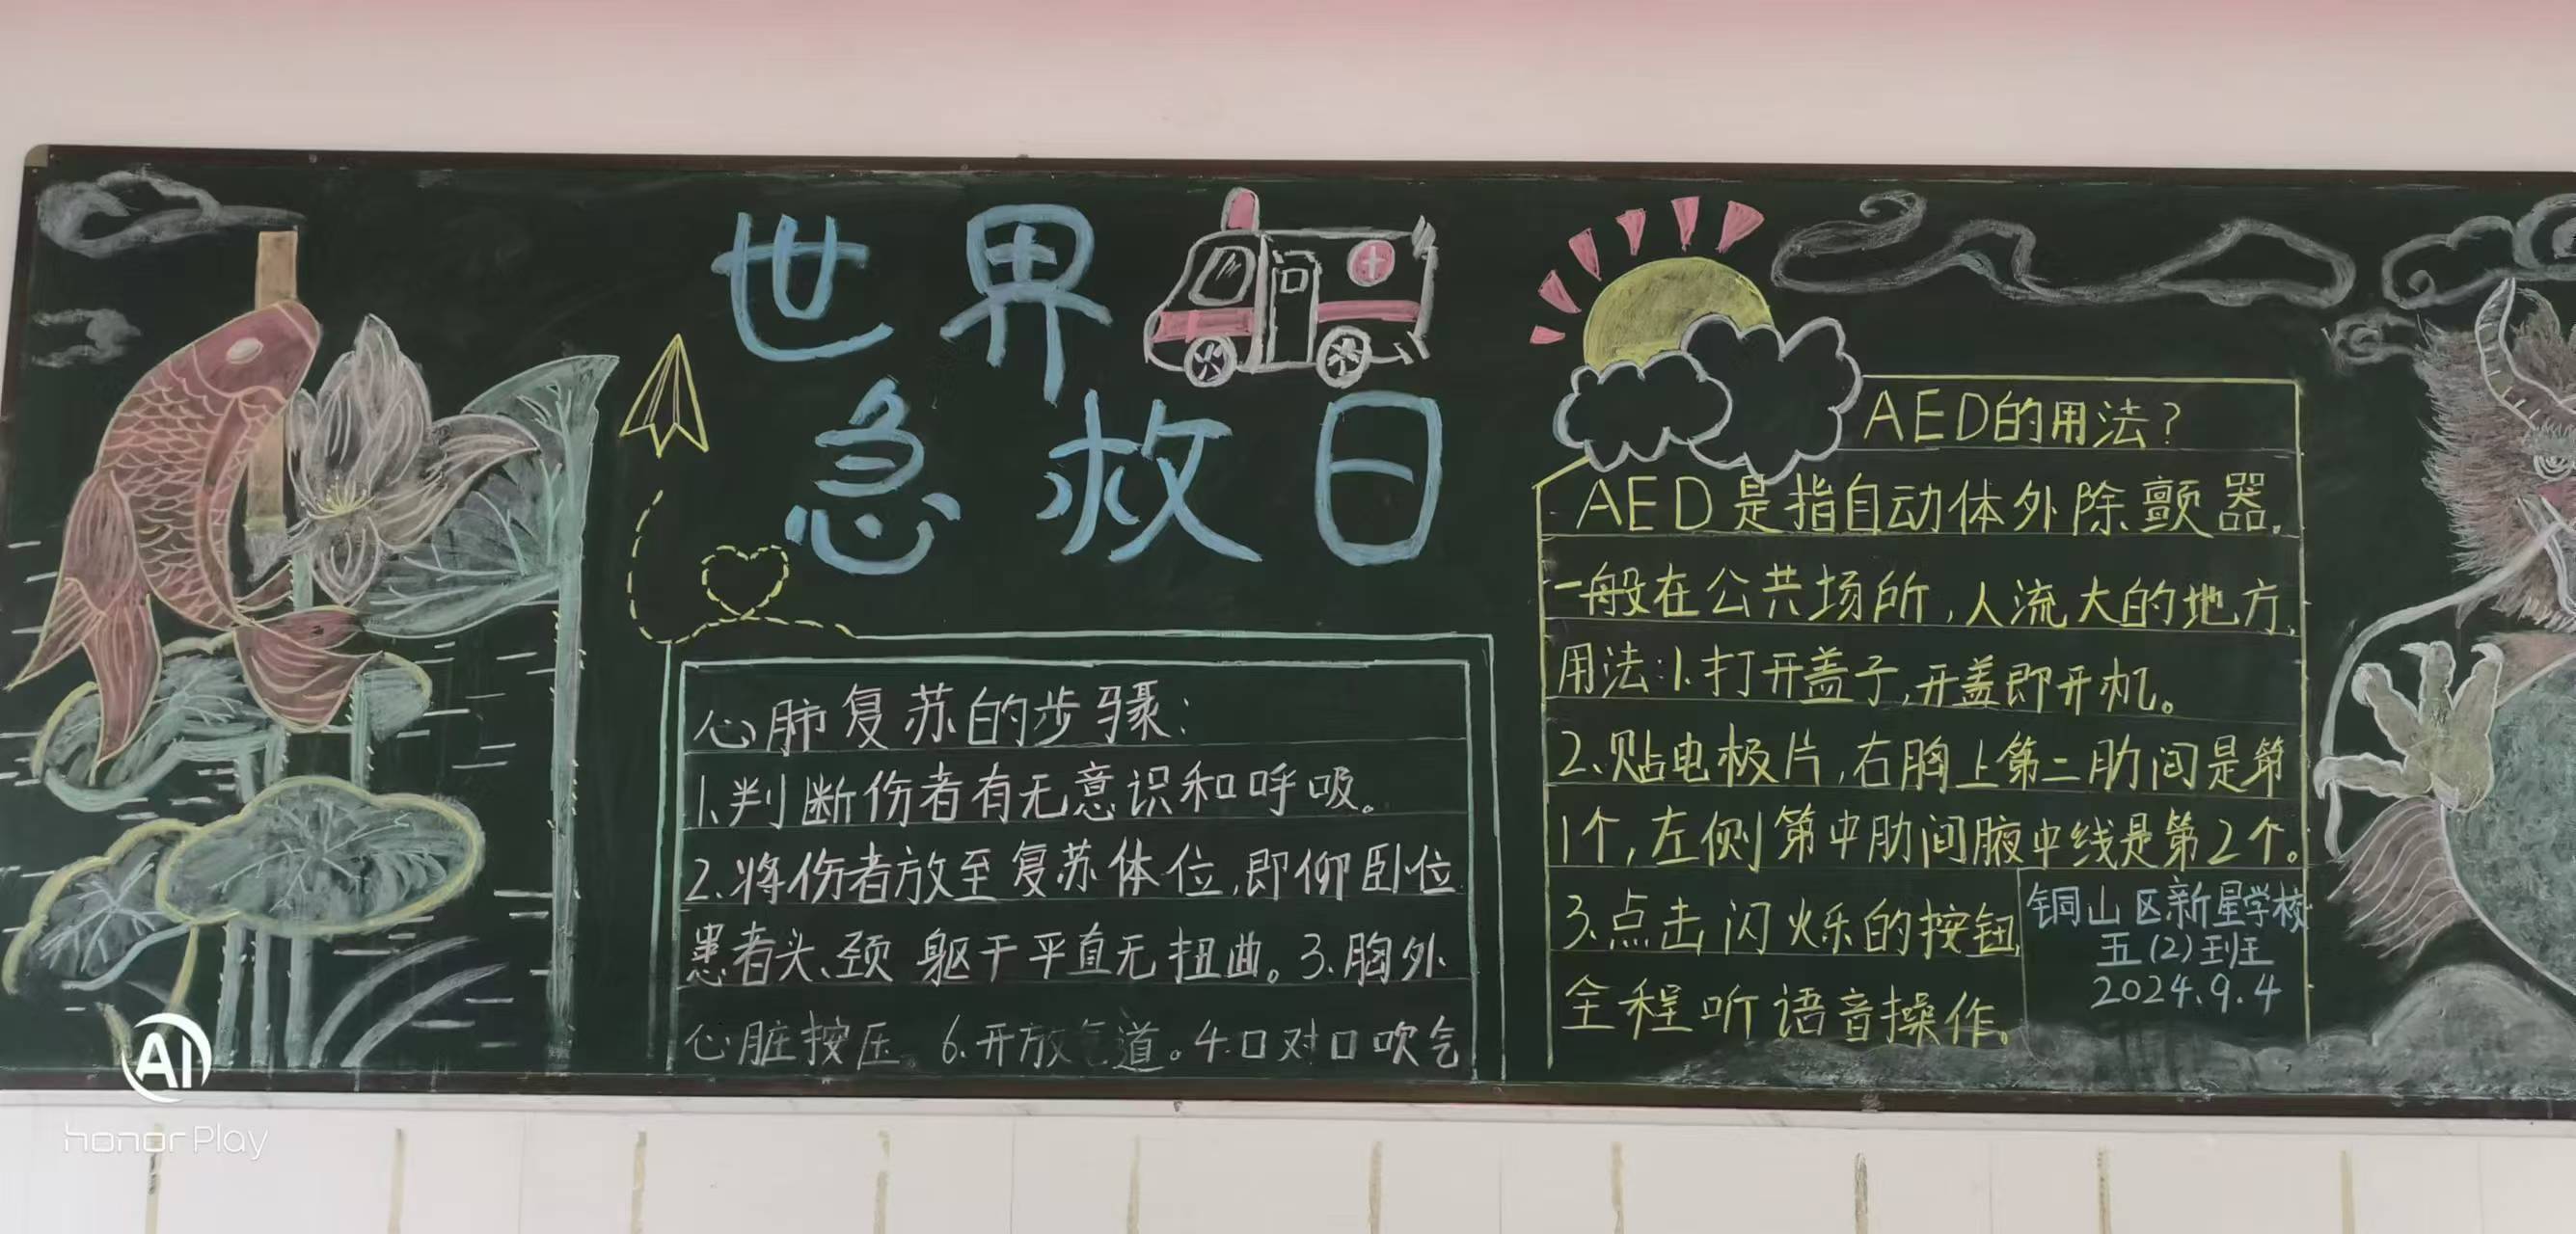 世界
急救日
心肺复苏的步骤：
1.判断伤者有无意识和呼吸。
2.将伤者放至复苏体位,即仰卧位
患者头、颈躯干平直无扭曲。3.胸外
心脏按压。6.开放气道。4.口对口吹气
AED的用法？
AED是指自动体外除颤器。
一般在公共场所,人流大的地方.
用法:1.打开盖子,开盖即开机。
2.贴电极片,右胸上第二肋间是第
1个,左侧第中肋间腋中线是第2个。
3.点击闪烁的按钮
全程听语音操作。
铜山区新星学校
五(2)班
2024.9.4
AI
honor Play